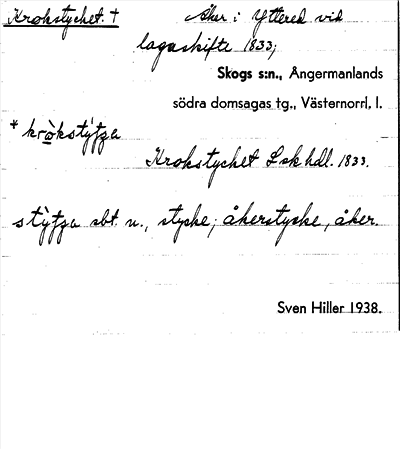 Krokstycket. † Åker i Yttered vid
lagaskifte 1833;
Skogs s:n., Ångermanlands
södra domsagas tg., Västernorrl. l.
* kròkstýʈʂa
Krokstycket Lskhdl. 1833.
stýʈʂa sbt. n., stycke, åkerstycke, åker.
Sven Hiller 1938.